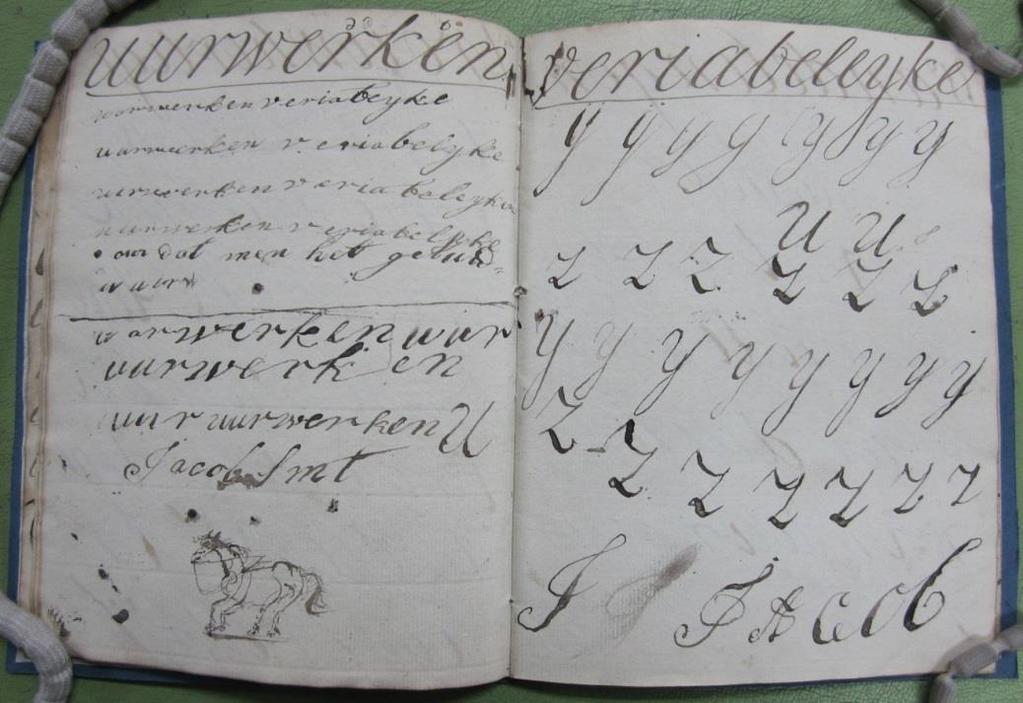 uurwerken
uurwerken veriabelyke
uurwerken veriabelyke
uurwerken veriabeleyke
uurwerken veriabelyke
dat men het
uur
uurwerken uur
uurwerken
uur uurwerken U
Jacob Smt
veriabeleyke
y y y y y y y
U U
Z Z Z Z Z Z
y y y y y y y y
Z Z
Z Z Z Z Z Z
J JAcob